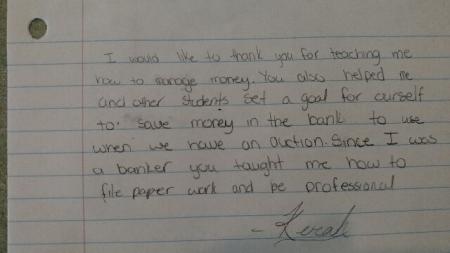 I would like to thank you for teaching me
how to manage money. You also helped me
and other students set a goal for ourself
to save money in the bank to use
when we have an auction. Since I was
a banker you taught me how to
file paper work and be professional